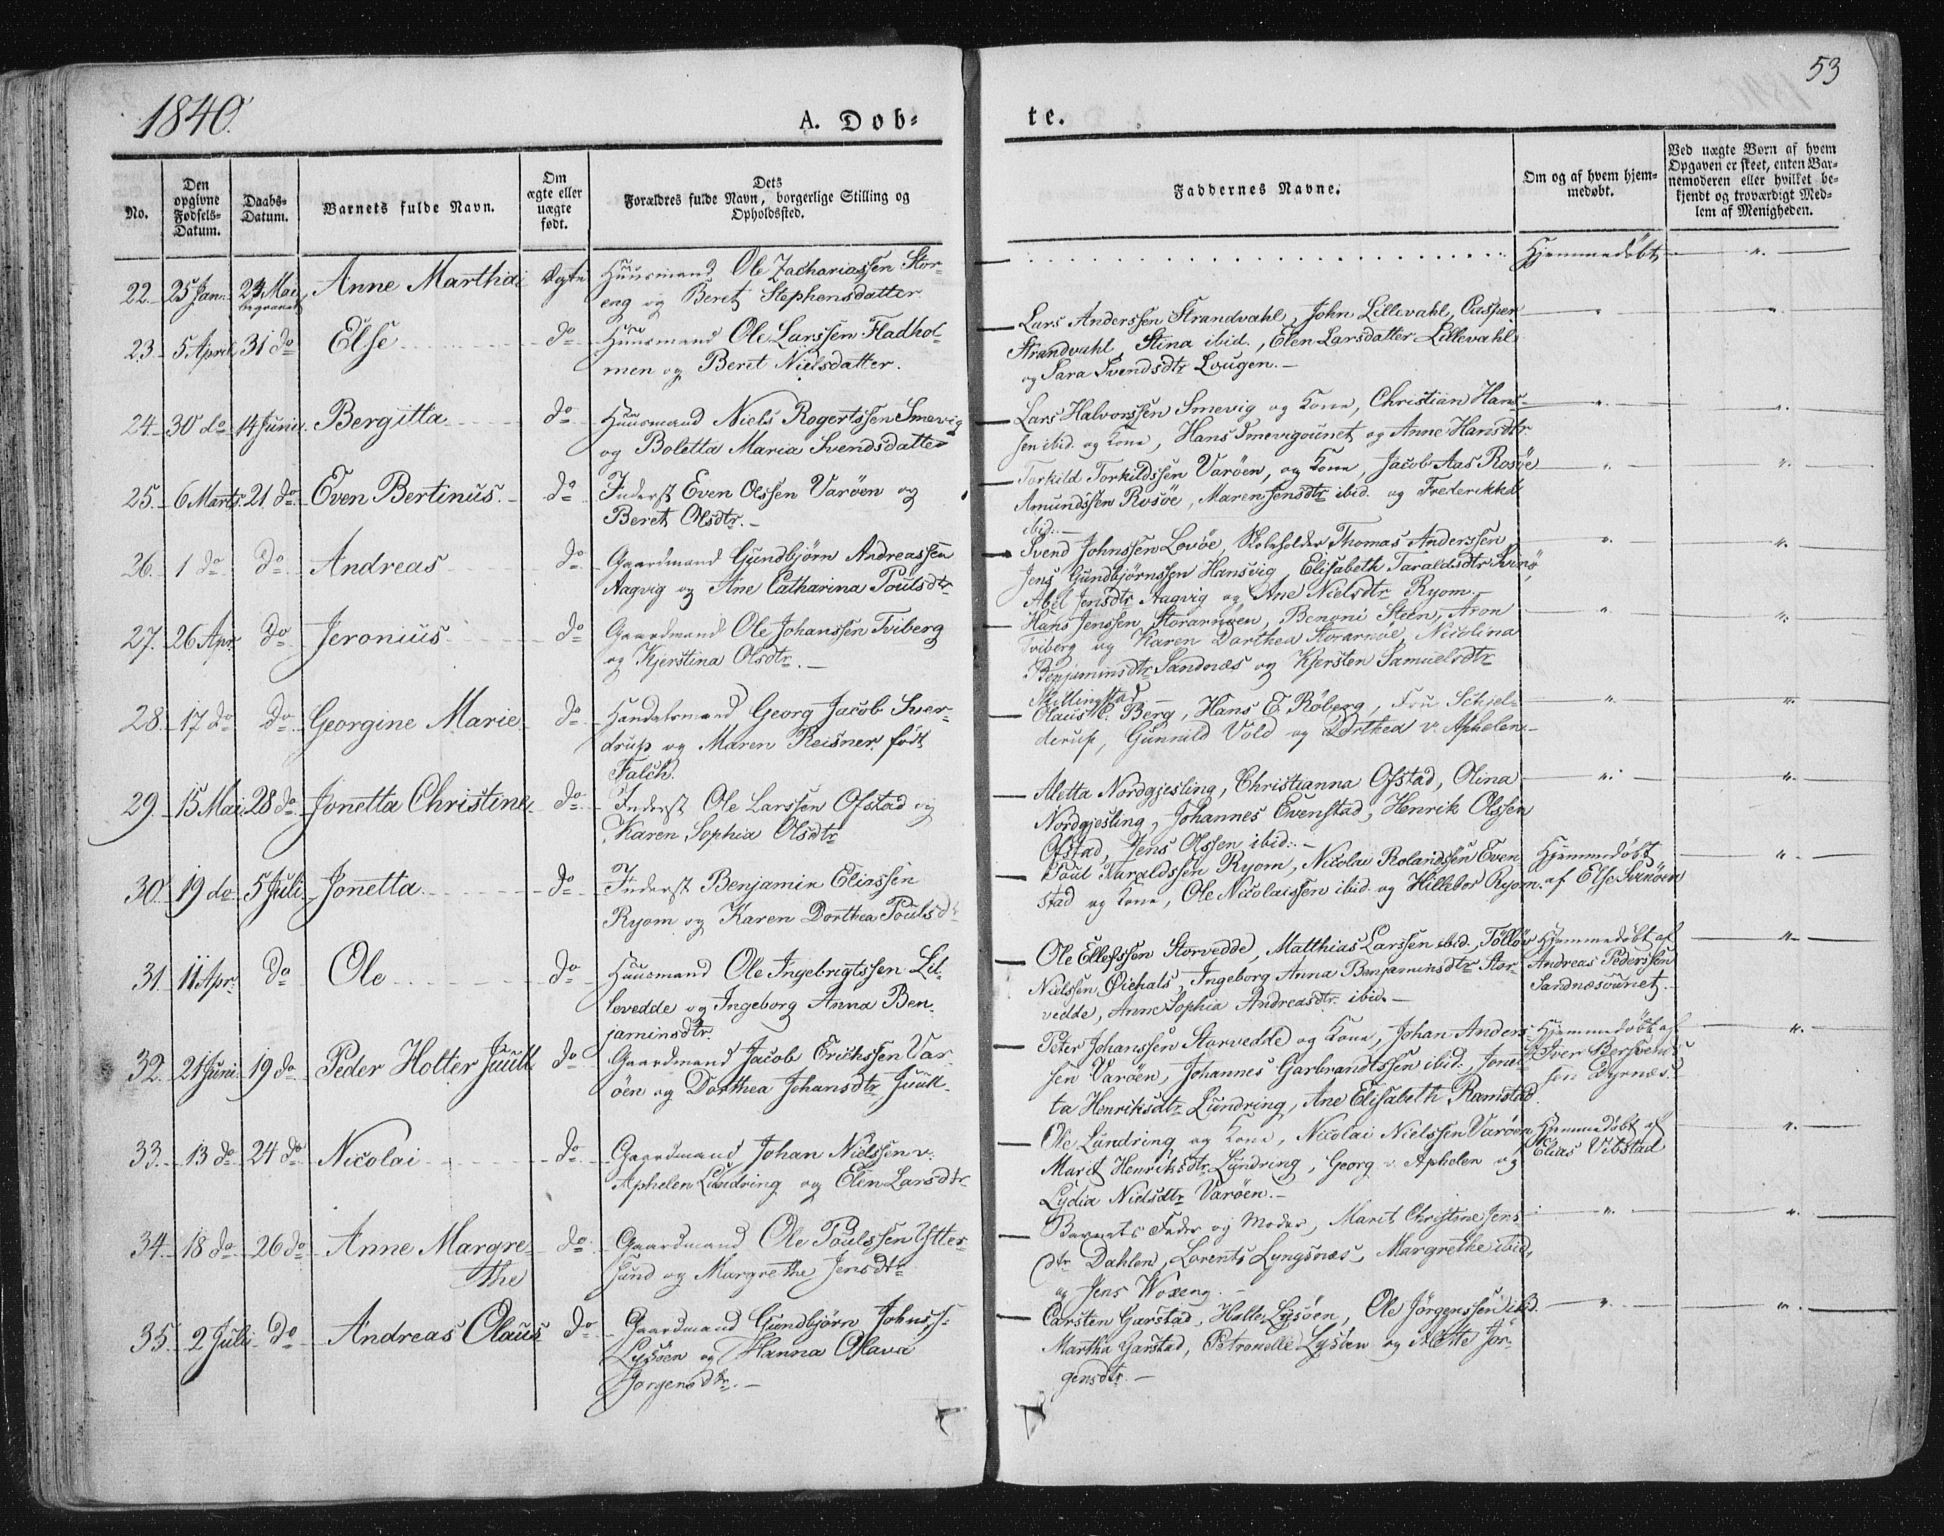 1840.
A. Dob-
te.
53
No.
Den opgivne Fødsels-Datum.
Daabs-Datum.
Barnets fulde Navn.
Om ægte eller uægte født.
Dets Forældres fulde Navn, borgerlige Stilling og Opholdssted.
Faddernes Navne.
Om og af hvem hjem-medøbt.
Ved uægte Børn af hvem Opgaven er skeet, enten Bar-nemoderen eller hvilket be-kjendt og troværdigt Med-lem af Menigheden.
22. 25 Jan. 24 Mai begravet Anne Martha ægte Huusmand Ole Zachariassen Stor-
eng og Beret Stephensdatter.
Hjemmedøbt "
23. 5 April 31 do Else do Huusmand Ole Larssen Fladhol-
men og Beret Nielsdatter.
Lars Anderssen Strandvahl, John Lillevahl, Casper
Strandvahl, Stina ibid., Elen Larsdatter Lillevahl
og Sara Svendsdtr Lougen.
24. 30 do 14 Junii Bergitta do Huusmand Niels Rogertssen Smevig
og Boletta Maria Svendsdatter
Lars Halvorssen Smevig og Kone, Christian Hans-
sen ibid. og Kone, Hans Smevigounet og Anne Hansdtr
25. 6 Marts 21 do Even Bertinus. do Inderst Even Olssen Varøen og
Beret Olsdtr.
Torkild Torkildssen Varøen, og Kone, Jacob Aas Rosøe
Amundssen Rosøe, Maren Jensdtr ibid. og Frederikka
ibid.
26. 1 do do Andreas do Gaardmand Gundbjørn Andreassen
Aagvig og Ane Catharina Poulsdtr
Svend Johnssen Lovøe, Skoleholder Thomas Anderssen
Jens Gundbjørnssen Hansvig, Elisabeth Taraldsdtr Svinø,
Abel Jensdtr Aagvig og Ane Nielsdtr Ryom.
27. 26 Apr. do Jeronius do Gaardmand Ole Johanssen Tviberg
og Kjerstina Olsdtr.
Hans Jenssen, Storarnøen, Benoni Steen, Aron
Tviberg og Karen Dorthea Storarnøe, Nicolina
Benjaminsdtr Sandnæs og Kjersten Samuelsdtr
Skillingstad
28. 17 do do Georgine Marie do Handelsmand Georg Jacob Sver-
drup og Maren Reisner født
Falch.
Olaus C. Berg, Hans E. Røberg, Fru Schjel-
derup, Gunnild Vold og Dorthea v. Aphelen
29. 15 Mai 28 do Jonetta Christine do Inderst Ole Larssen Ofstad og
Karen Sophia Olsdtr
Aletta Nordgjesling, Christianna Ofstad, Olina
Nordgjesling, Johannes Evenstad, Henrik Olssen
Ofstad, Jens Olssen ibid.
30. 19 do 5 Juli Jonetta do Inderst Benjamin Eliassen
Ryom og Karen Dorthea Poulsdtr
Poul Taraldssen Ryom, Nicolai Rolandssen Even
stad og Kone, Ole Nicolaissen ibid og Hillebor Ryom.
Hjemmedøbt
af Else Svinøen
31. 11 Apr. do Ole do Huusmand Ole Ingebrigtssen Lil-
levedde og Ingeborg Anna Ben-
jaminsdtr.
Ole Ellefssen Storvedde, Matthias Larssen ibid., Tolløv
Nielssen Øiehals, Ingeborg Anna Benjaminsdtr Stor-
vedde, Anne Sophia Andreasdtr. ibid.
Hjemmedøbt af
Andreas Pederssen
Sandnæsounet.
32. 21 Juni 19 do Peder Holter Juul do Gaardmand Jacob Erichssen Var-
øen og Dorthea Johansdtr Juul.
Peter Johanssen Storvedde og Kone, Johan Anders-
sen Varøen, Johannes Garbrandtssen ibid., Jonet-
ta Henriksdtr Lundring, Ane Elisabeth Ramstad
Hjemmedøbt af
Iver Bersvend-
sen Dyrnæs.
33. 13 do 24 do Nicolai do Gaardmand Johan Nielssen v.
Aphelen Lundring og Elen Larsdtr
Ole Lundring og Kone, Nicolai Nielssen Varøen
Marit Henriksdtr Lundring, Georg v. Aphelen og
Lydia Nielsdtr Varøen.
Hjemmedøbt af
Elias Vibstad
34. 18 do 26 do Anne Margre-
the
do Gaardmand Ole Poulssen Ytter-
sund og Margrethe Jensdtr
Barnets Fader og Moder, Marit Christine Jens-
dtr Dahlen, Lorents Lyngsnæs, Margrethe ibid,
og Jens Woxeng.
35. 2 Juli do Andreas Olaus do Gaardmand Gundbjørn Johnss-
Lysøen og Hanna Olava
Jørgensdtr.
Carsten Garstad, Halle Lysøen, Ole Jørgenssen ibid.
Martha Garstad, Petronelle Lysøen og Alette Jør-
gensdtr.